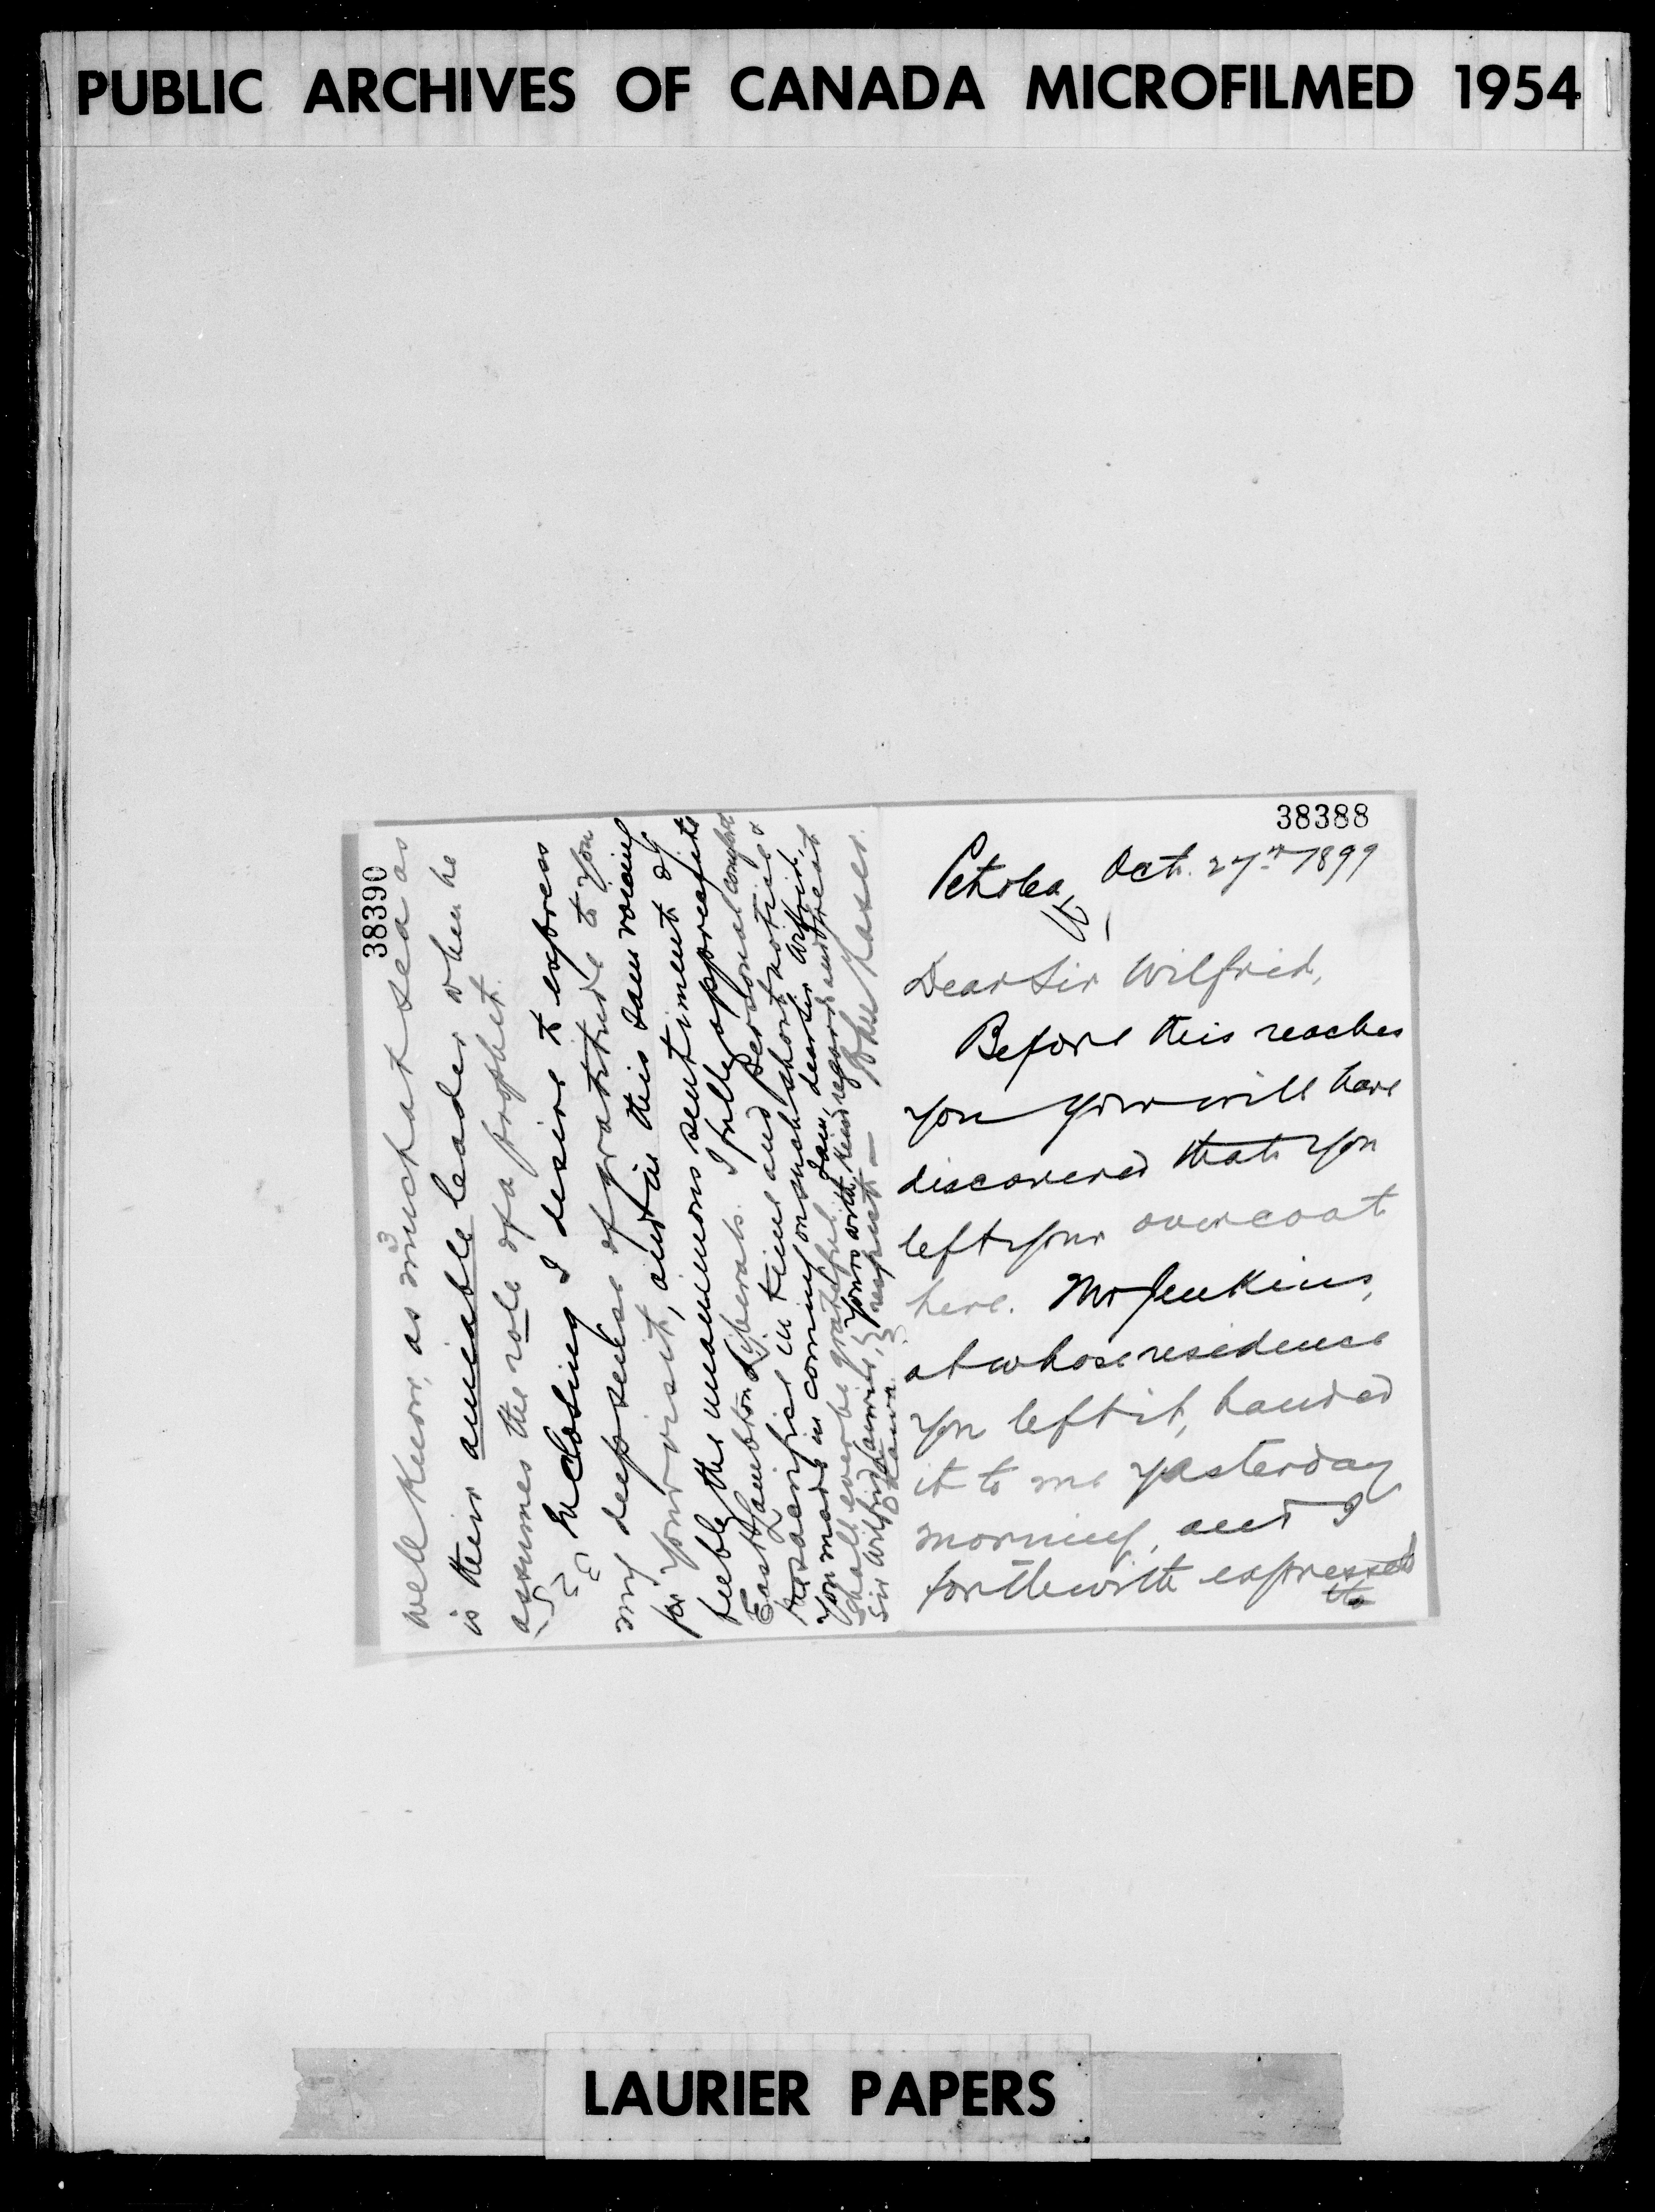 PUBLIC ARCHIVES OF CANADA MICROFILMED 1954
38388
Petrolea, Oct. 27th 1899
Dear Sir Wilfrid,
Before this reaches
you you will have
discovered that you
left your overcoat
here. Mr Jenkins,
at whose residence
you left it, handed
it to me yesterday
morning, and I
forthwith expressed
it to
38390
3
well know, as much at sea as
is their amiable leader when he
assumes the role of a prophet.
In closing I desire to express
my deep sense of gratitude to you
for your visit, and in this I am voicing
feebly the unanimous sentiment of
East Lambton Liberals. I fully appreciate
the sacrifice in time and personal comfort
you made in coming on such short notice &
shall ever be grateful. I am, dear Sir Wilfrid,
Yours with kind regards and great
respect—
Sir Wilfrid Laurier,
Ottawa.
John Fraser.
LAURIER PAPERS